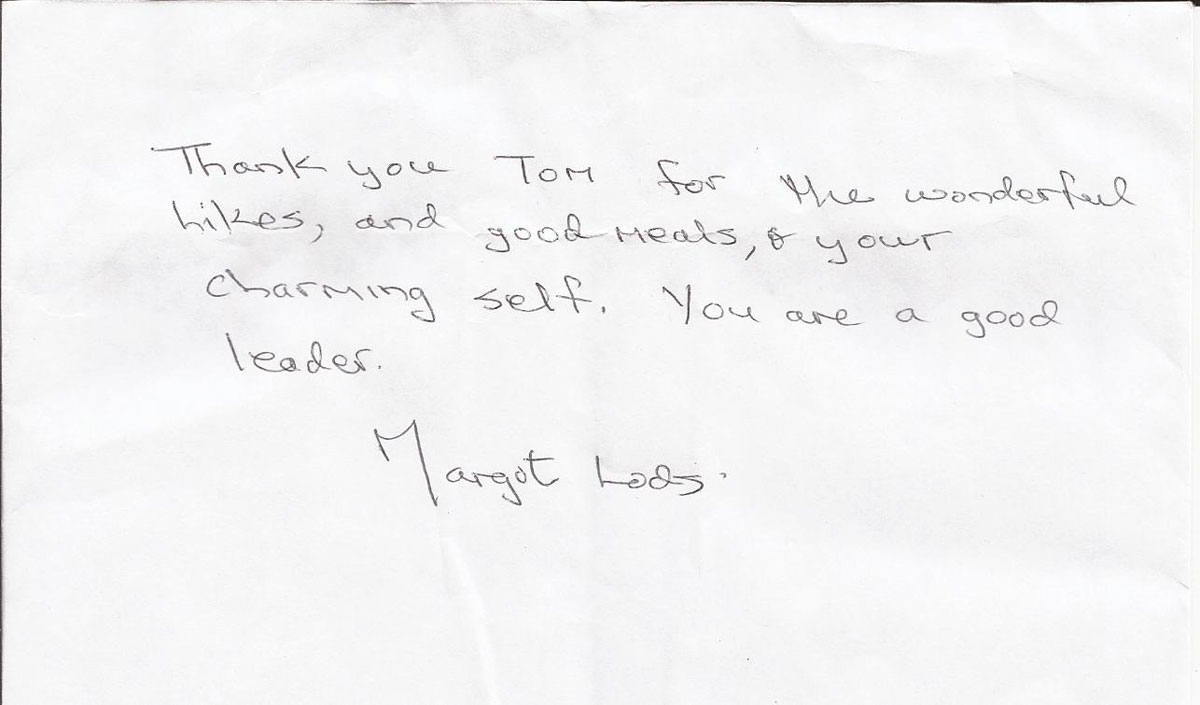 Thank you Tom for the wonderful
hikes, and good meals, & your
charming self. You are a good
leader.
Margot Lods.